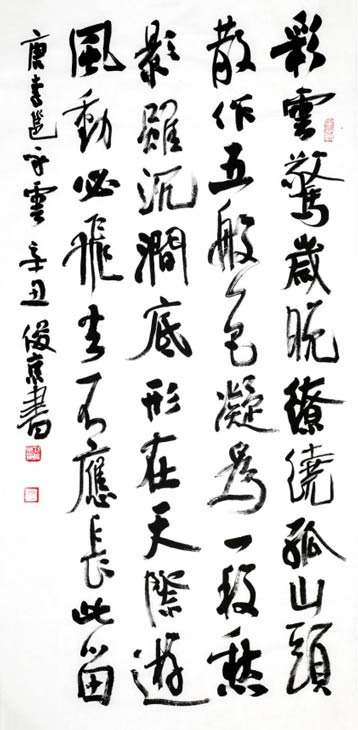 彩雲驚歲晚繚繞孤山頭
散作五般色凝爲一段愁
影雖沉澗底形在天際遊
風動必飛去不應長此留
唐李邕咏雲辛丑俊京書